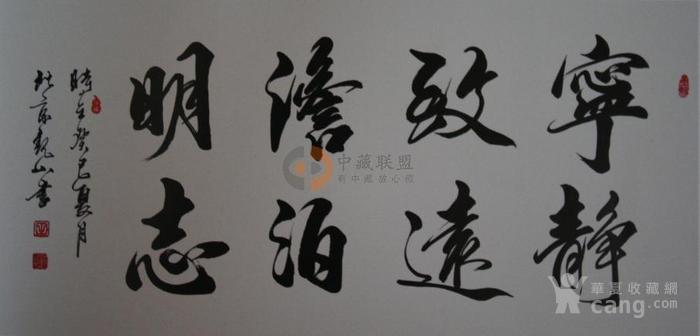 寧静
致遠
澹泊
明志
時在癸巳夏月
京山書
中藏联盟
有中藏放心藏
華夏收藏網
cang.com